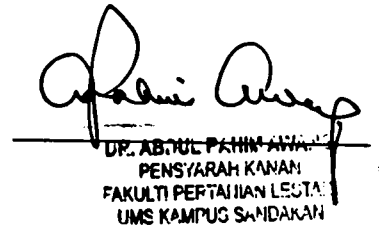 DR. ABDUL RAHIM AWANG
PENSYARAH KANAN
FAKULTI PERTANIAN LESTARI
UMS KAMPUS SANDAKAN